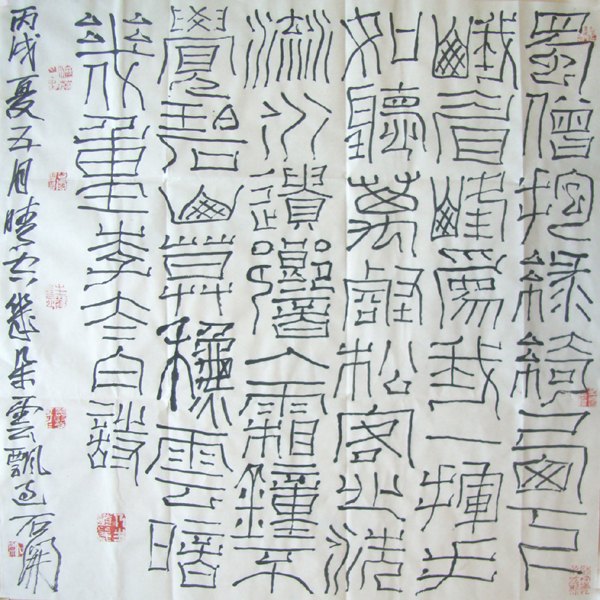 蜀僧抱綠綺西下
峨眉峰爲我一揮手
如聽萬壑松客心洗
流水遺響入霜鐘不
覺碧山暮秋雲暗
幾重李太白詩
丙戌夏五月晴空幾朵雲飄過石開